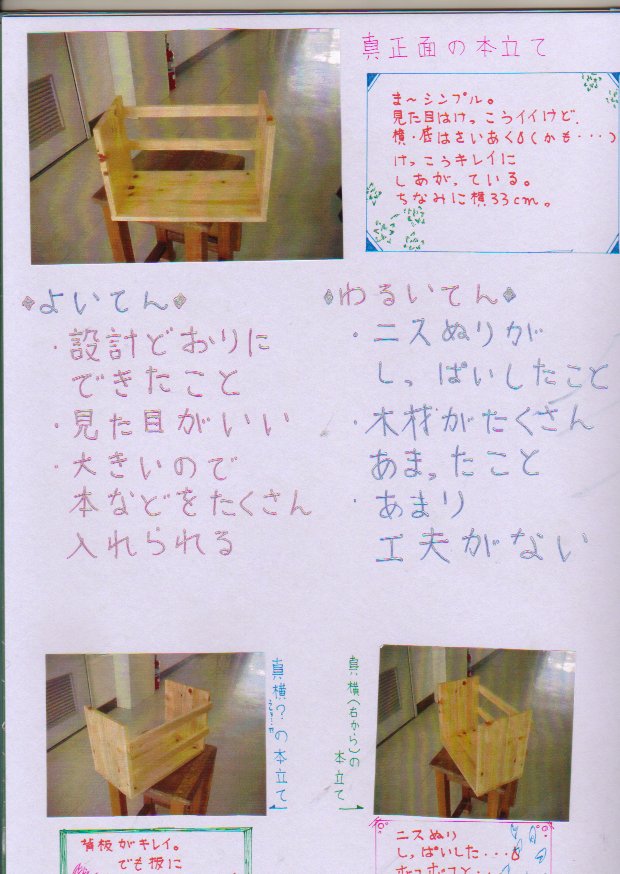 真正面の本立て
ま〜シンプル。
見た目はけっこうイイけど、
横・底はさいあく(かも・・・)
けっこうキレイに
しあがっている。
ちなみに横33cm。
よいてん
・設計どおりに
できたこと
・見た目がいい
・大きいので
本などをたくさん
入れられる
わるいてん
・ニスぬりが
しっぱいしたこと
・木材がたくさん
あまったこと
・あまり
工夫がない
真横?の本立て
真横(右から)の
本立て
背板がキレイ。
でも板に
ニスぬり
しっぱいした・・・